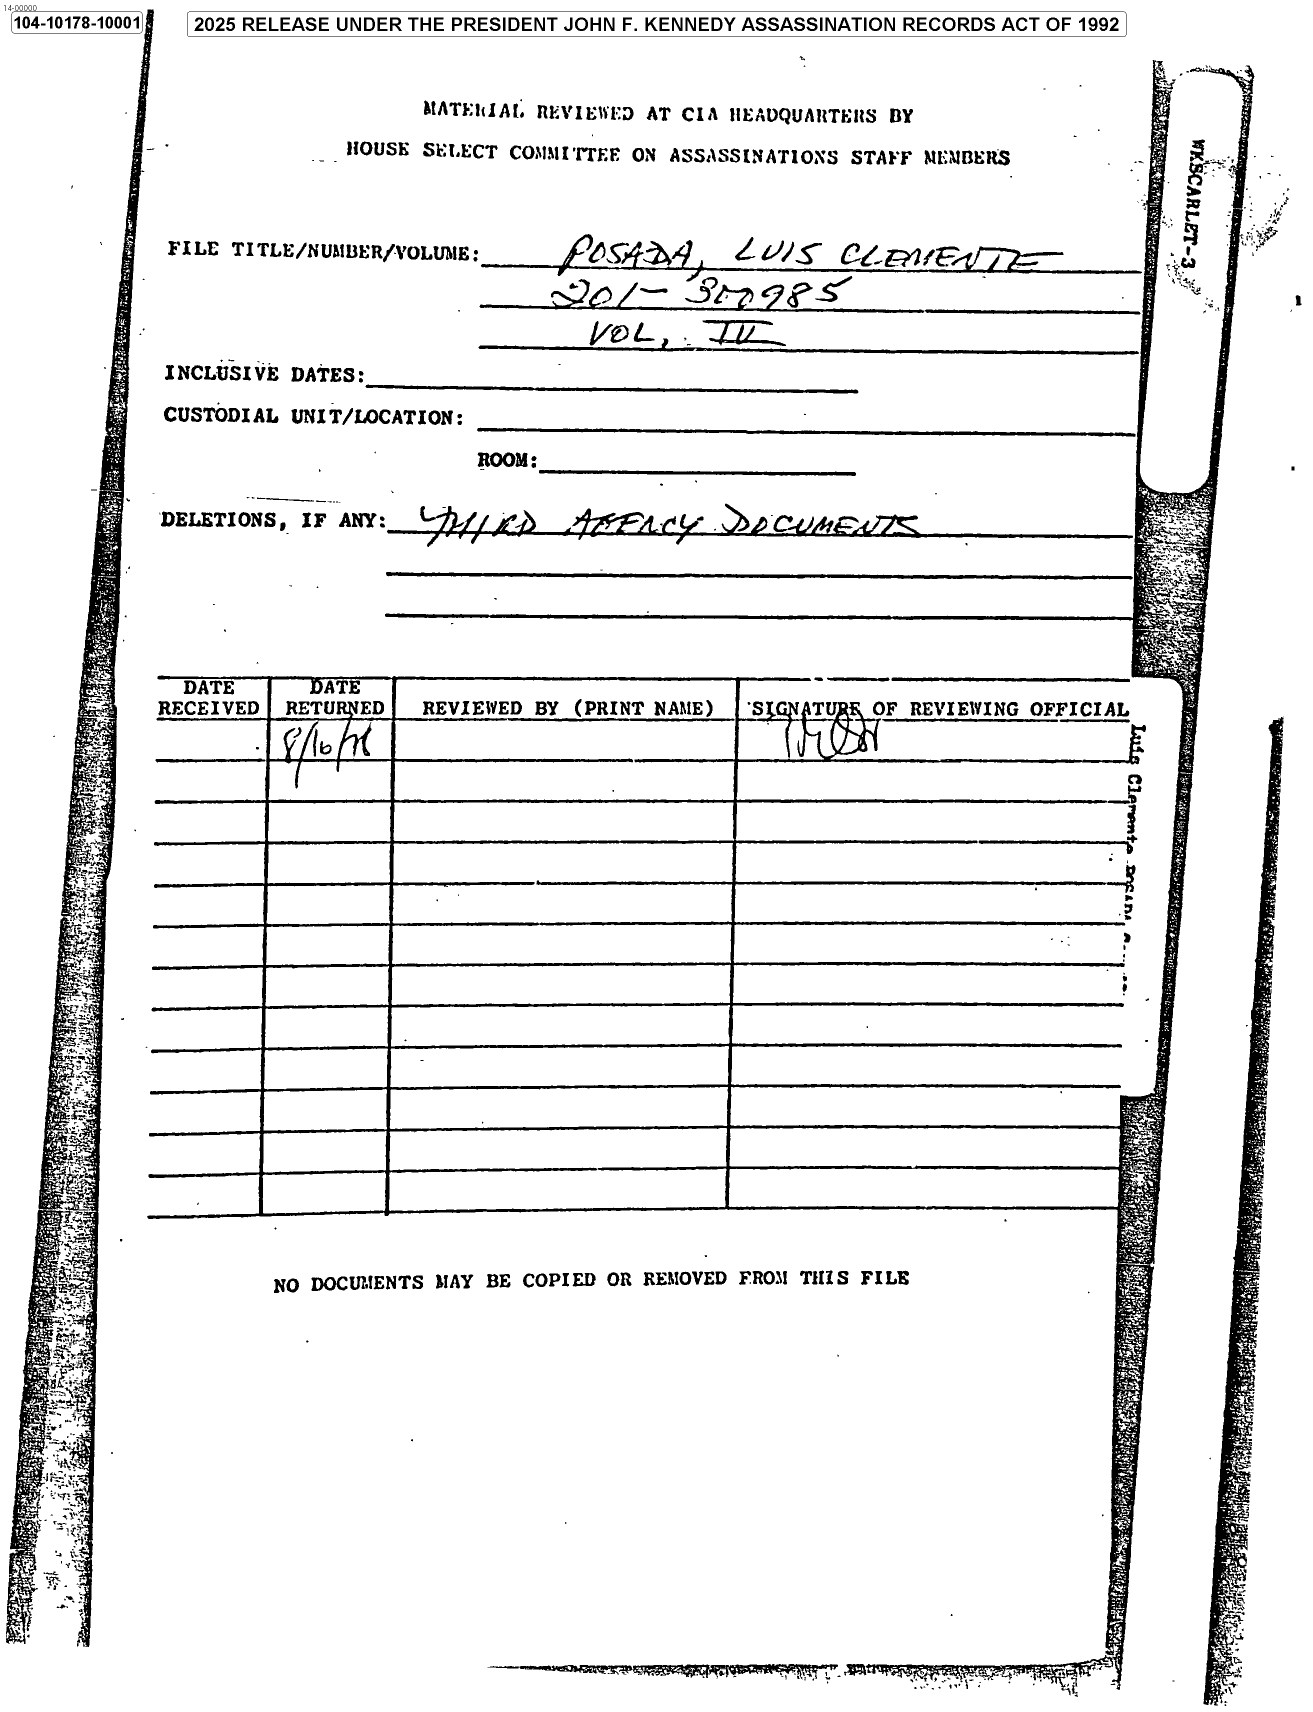 14-00000
104-10178-10001
2025 RELEASE UNDER THE PRESIDENT JOHN F. KENNEDY ASSASSINATION RECORDS ACT OF 1992
MATERIAL REVIEWED AT CIA HEADQUARTERS BY
HOUSE SELECT COMMITTEE ON ASSASSINATIONS STAFF MEMBERS
WKSCARLET-3
FILE TITLE/NUMBER/VOLUME: POSADA, LUIS CLEMENTE
201-300985
VOL,
INCLUSIVE DATES:
CUSTODIAL UNIT/LOCATION:
ROOM:
DELETIONS, IF ANY: THIRD AGENCY DOCUMENTS
DATE RECEIVED
DATE RETURNED
REVIEWED BY (PRINT NAME)
SIGNATURE OF REVIEWING OFFICIAL
8/10/78
Luis Clemente POSADA
NO DOCUMENTS MAY BE COPIED OR REMOVED FROM THIS FILE